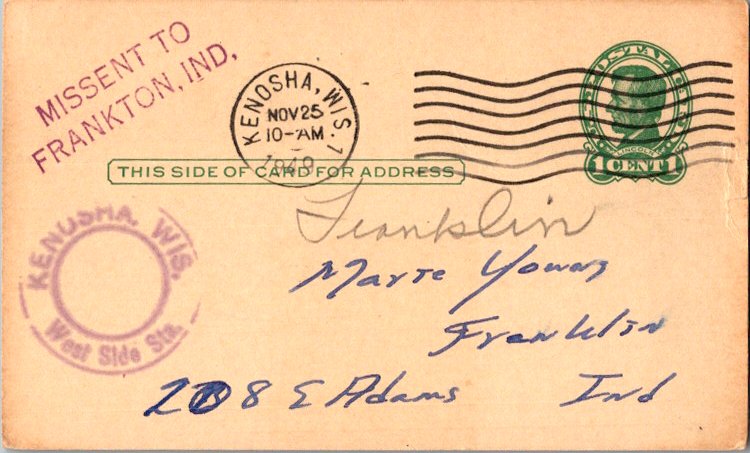 MISSENT TO
FRANKTON, IND.
KENOSHA, WIS. 1
NOV 25
10-AM
1949
POSTAL CARD
LINCOLN
1 CENT 1
THIS SIDE OF CARD FOR ADDRESS
KENOSHA, WIS.
West Side Sta.
Franklin
Marie Young
Franklin
208 E Adams Ind